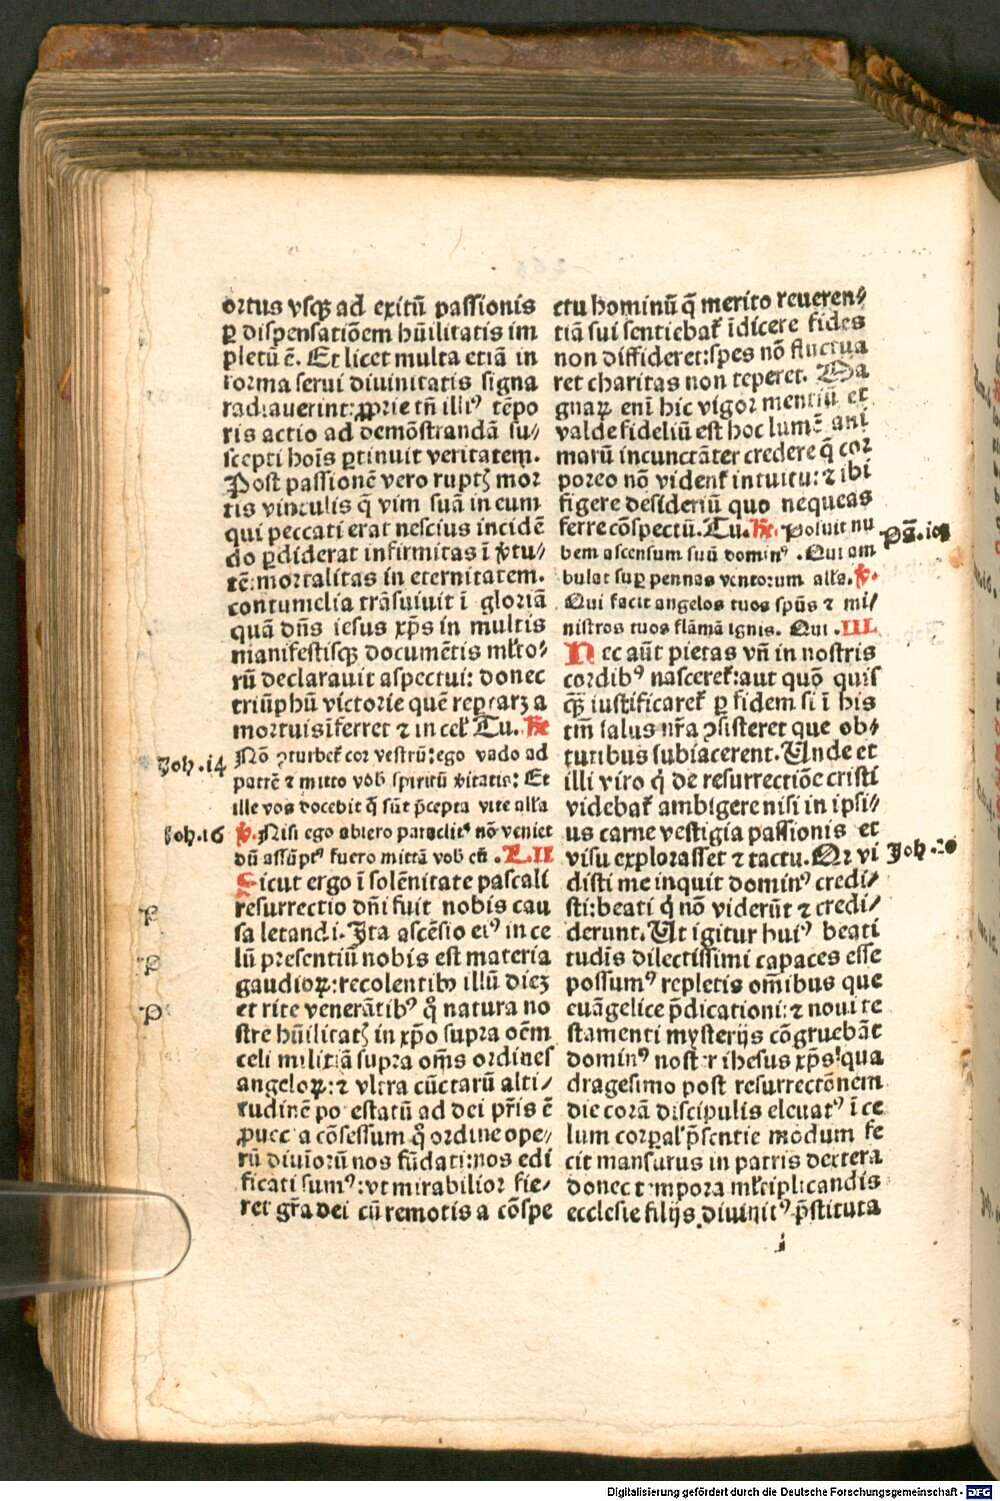 ortus vsqꝫ ad exitũ passionis
ꝑ dispensatiõem hũilitatis im
pletũ ē. Et licet multa etiã in
forma serui diuinitatis signa
radiauerint: ꝓprie tñ illiꝰ tẽpo
ris actio ad demõstrandã su⸗
scepti hoĩs ꝑtinuit veritatem.
Post passionẽ vero ruptꝭ mor
tis vinculis q̃ vim suã in eum
qui peccati erat nescius incidẽ
do ꝑdiderat infirmitas ĩ ꝟtu⸗
tẽ: mortalitas in eternitatem.
contumelia trãsiuit ĩ gloriã
quã dñs iesus xp̃s in multis
manifestisqꝫ documẽtis mĺto⸗
rũ declarauit aspectui: donec
triũphũ victorie quẽ reportarat a
mortuis ĩferret ⁊ in cel̕ Tu. ℟
Joh.14
Nõ ꝯturbet̃ cor vestrũ: ego vado ad
patrẽ ⁊ mitto vob̕ spiritũ ꝟitatis: Et
ille vos docebit q̃ sũt p̃cepta vite alĺa
Joh.16
℣. Nisi ego abiero paraclitꝰ nõ veniet
dũ assũptꝰ fuero mittã vob̕ eũ . L.II
Sicut ergo ĩ solẽnitate pascali
resurrectio dñi fuit nobis cau
sa letandi. Ita ascẽsio eiꝰ in ce
lũ presentiũ nobis est materia
gaudioꝝ: recolentibꝰ illũ diez
et rite venerãtibꝰ q̊ natura no
stre hũilitatꝭ in xp̃o supra oẽm
celi militiã supra om̃s ordines
angeloꝝ: ⁊ vltra cũctarũ alti⸗
tudinẽ potestatũ ad dei pr̃is ẽ
ꝓuecta cõsessum q̊ ordine ope⸗
rũ diuĩorũ nos fũdati: nos edi
ficati sumꝰ: vt mirabilior fie⸗
ret gr̃a dei cũ remotis a cõspe
P
P
P
ctu hominũ q̃ merito reueren⸗
tiã sui sentiebat̃ ĩdicere fides
non diffideret: spes nõ fluctua
ret charitas non teperet. Ma
gnaꝝ eni hic vigor mentiũ et
valde fideliũ est hoc lumẽ ani
marũ incunctãter credere q̃ cor
poreo nõ vident̃ intuitu: ⁊ ibi
figere desideriũ quo nequeas
ferre cõspectũ. Tu. ℟ Posuit nu
Pṡ.103
bem ascensum suũ dominꝰ . Qui am
bulat suꝑ pennas ventorum alĺa. ℣.
Qui facit angelos tuos spũs ⁊ mi⸗
nistros tuos flãmã ignis. Qui . III
Nec aũt pietas vñ in nostris
cordibꝰ nasceret̃: aut quõ quis
qꝫ iustificaret̃ ꝑ fidem si ĩ his
tm̃ salus nr̃a ꝯsisteret que ob⸗
tutibus subiacerent. Unde et
illi viro q̊ de resurrectiõe cristi
videbat̃ ambigere nisi in ipsi⸗
us carne vestigia passionis et
visu explorasset ⁊ tactu. Qr vi
Joh.20
disti me inquit dominꝰ credi⸗
sti: beati q̊ nõ viderũt ⁊ credi⸗
derunt. Ut igitur huiꝰ beati
tudĩs dilectissimi capaces esse
possumꝰ repletis om̃ibus que
euãgelice p̃dicationi: ⁊ noui te
stamenti mysterijs cõgruebãt
dominꝰ noster ihesus xp̃s! qua
dragesimo post resurrectõnem
die corã discipulis eleuatꝰ ĩ ce
lum corpal̕ p̃sentie modum fe
cit mansurus in patris dextera
donec tempora mĺtiplicandis
ecclesie filijs diuinitꝰ p̃stituta
i
Digitalisierung gefördert durch die Deutsche Forschungsgemeinschaft - DFG